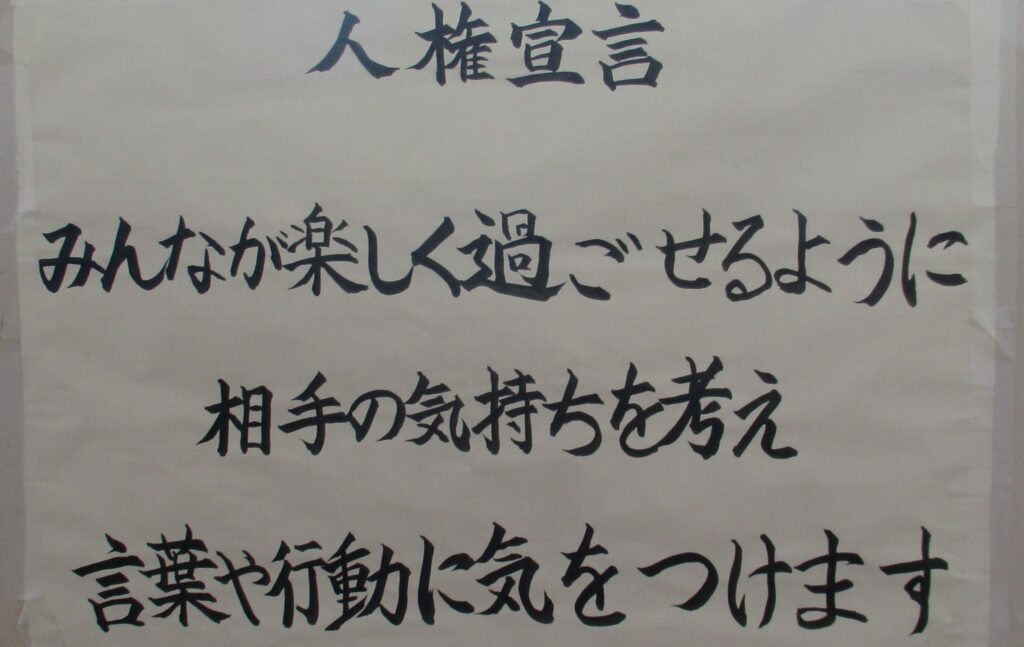 人権宣言
みんなが楽しく過ごせるように
相手の気持ちを考え
言葉や行動に気をつけます